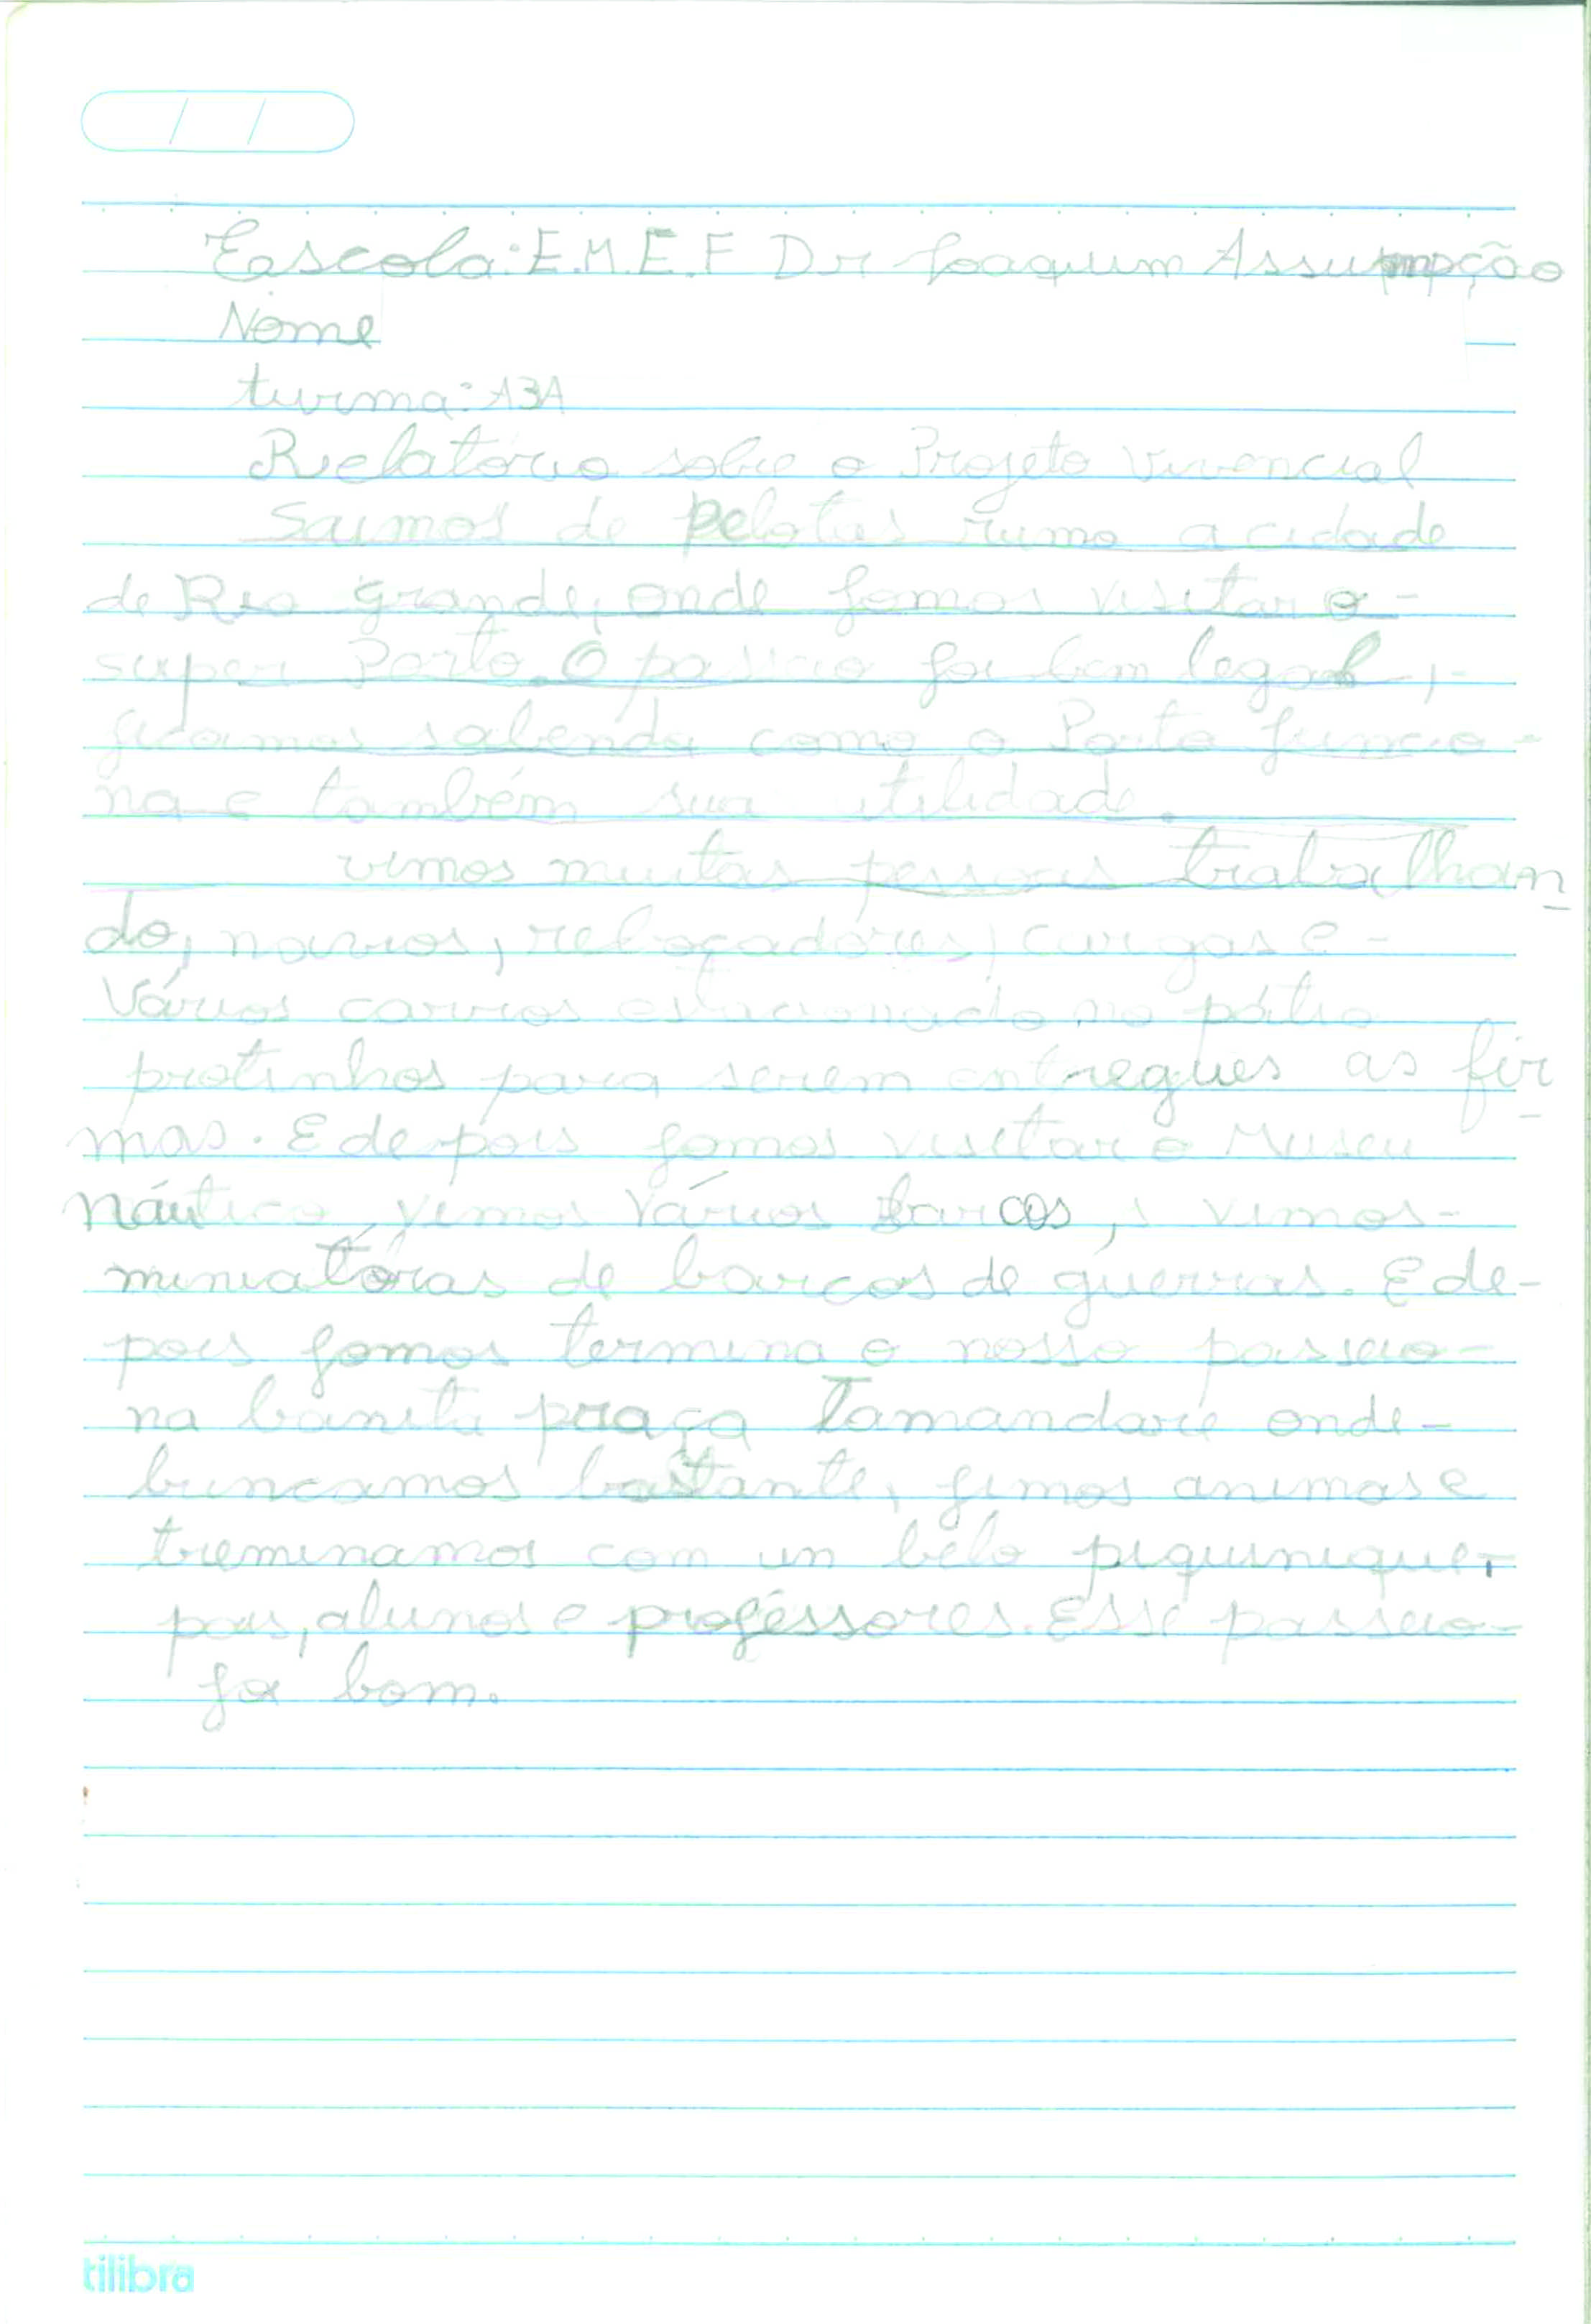 Eascola: E.M.E.F Dr Joaquim Assumpção
Nome
turma: A3A
Relatório sobre o Projeto Vivencial
Saimos de Pelotas rumo a cidade
de Rio grande, onde fomos visitar o -
super Porto. O passeio foi bem legal, -
ficamos sabendo como o Porto funcio -
na e também sua utilidade.
vimos muitas pessoas trabalhan-
do, navios, rebocadores, cargas e -
Vários carros estacionado no pátio
protinhos para serem entregues as fir-
mas. E depois fomos visitar o Museu
náutico, vimos vários barcos, vimos -
miniatóras de barcos de guerras. E de-
pois fomos termina o nosso passeio -
na bonita praça Tamandaré onde -
brincamos bastante, fimos animas e
treminamos com un belo piquinique,
pais, alunos e proféssores. Esse passeio -
foi bom.
tilibra